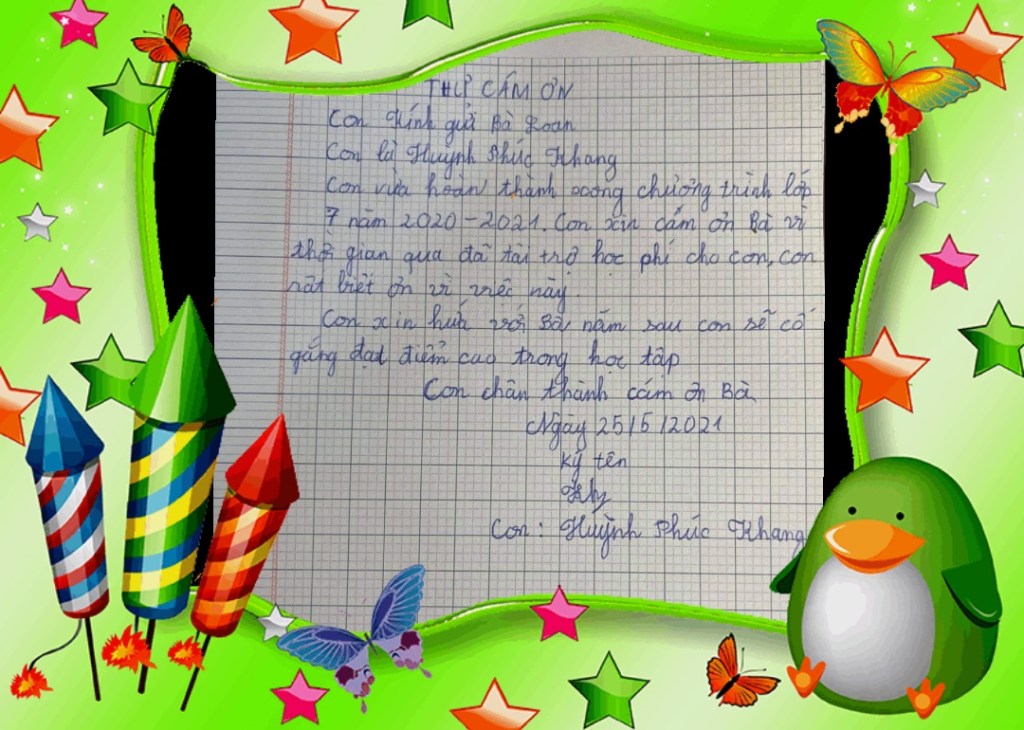 THƯ CÁM ƠN
Con Kính gửi Bà Loan
Con là Huỳnh Phúc Khang
Con vừa hoàn thành xong chương trình lớp
7 năm 2020-2021. Con xin cám ơn Bà vì
thời gian qua đã tài trợ học phí cho con, con
rất biết ơn vì việc này.
Con xin hứa với Bà năm sau con sẽ cố
gắng đạt điểm cao trong học tập
Con chân thành cám ơn Bà
Ngày 25/5/2021
Ký tên
Con: Huỳnh Phúc Khang